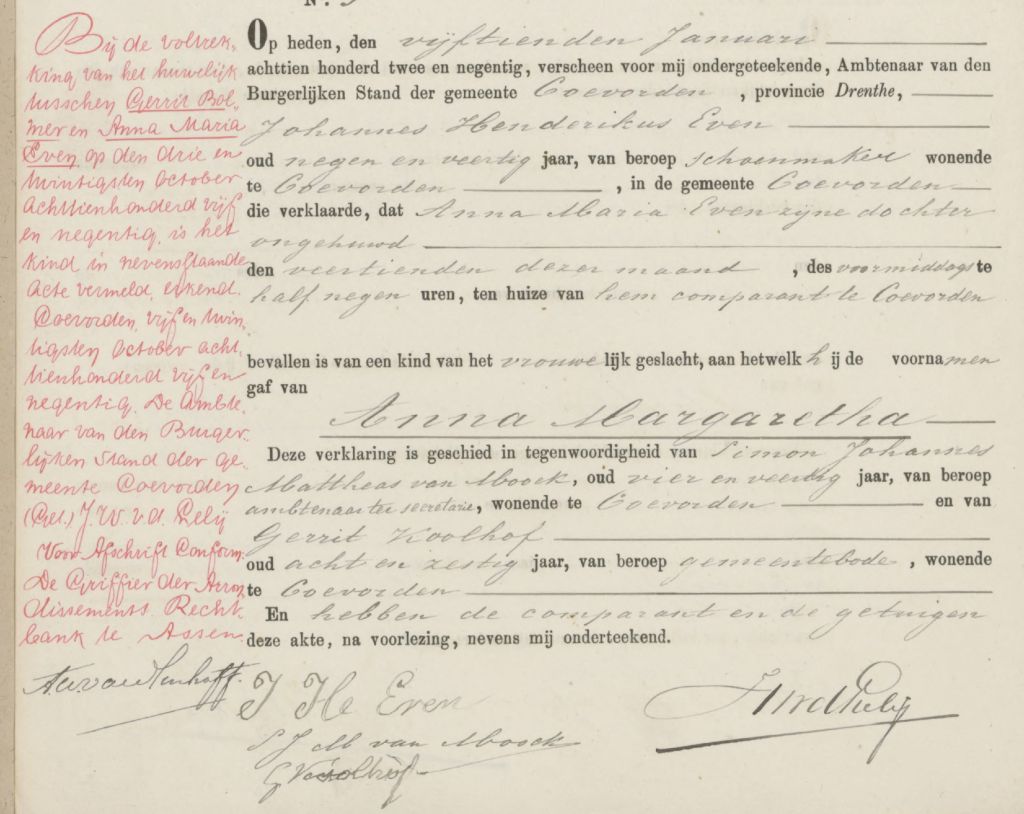 Bij de voltrek-
king van het huwelijk
tusschen Gerrit Bol-
mer en Anna Maria
Even, op den drie en
twintigsten October
achttienhonderd vijf
en negentig, is het
kind in nevenstaande
acte vermeld, erkend.
Coevorden, vijf en twin-
tigsten October acht-
tienhonderd vijf en
negentig. De Ambte-
naar van den Burger-
lijken Stand der ge-
meente Coevorden
(Get.) J. W. v. d. Lelij
Voor Afschrift Conform
De Griffier der Arron-
dissements Recht-
bank te Assen
Op heden, den vijftienden Januari
achttien honderd twee en negentig, verscheen voor mij ondergeteekende, Ambtenaar van den
Burgerlijken Stand der gemeente Coevorden, provincie Drenthe,
Johannes Henderikus Even
oud negen en veertig jaar, van beroep schoenmaker wonende
te Coevorden, in de gemeente Coevorden
die verklaarde, dat Anna Maria Even zijne dochter
ongehuwd
den veertienden dezer maand, des voormiddags te
half negen uren, ten huize van hem comparant te Coevorden
bevallen is van een kind van het vrouwelijk geslacht, aan hetwelk hij de voornamen
gaf van
Anna Margaretha
Deze verklaring is geschied in tegenwoordigheid van Simon Johannes
Mattheas van Moock, oud vier en veertig jaar, van beroep
ambtenaar ter secretarie, wonende te Coevorden en van
Gerrit Koolhof
oud acht en zestig jaar, van beroep gemeentebode, wonende
te Coevorden
En hebben de comparant en de getuigen
deze akte, na voorlezing, nevens mij onderteekend.
J He Even
S J M van Moock
G Koolhof